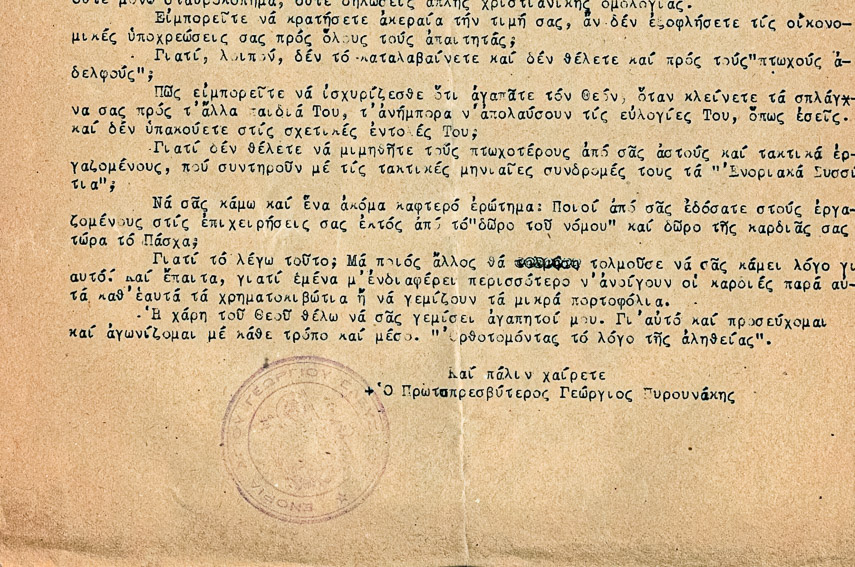 οὔτε μόνο σταυροκόπημα, οὔτε δηλώσεις ἁπλῆς χριστιανικῆς ὁμολογίας.
Εἰμπορεῖτε νά κρατήσετε ἀκεραία τήν τιμή σας, ἄν δέν ἐξοφλήσετε τίς οἰκονο-
μικές ὑποχρεώσεις σας πρός ὅλους τούς ἀπαιτητάς;
Γιατί, λοιπόν, δέν τό καταλαβαίνετε καί δέν θέλετε καί πρός τούς"πτωχούς ἀ-
δελφούς";
Πῶς εἰμπορεῖτε νά ἰσχυρίζεσθε ὅτι ἀγαπᾶτε τόν Θεόν, ὅταν κλείνετε τά σπλάγχ-
να σας πρός τ'ἄλλα παιδιά Του, τ'ἀνήμπορα ν'ἀπολαύσουν τίς εὐλογίες Του, ὅπως ἐσεῖς.
καί δέν ὑπακούετε στίς σχετικές ἐντολές Του;
Γιατί δέν θέλετε νά μιμηθῆτε τούς πτωχοτέρους ἀπό σᾶς ἀστούς καί τακτικά ἐρ-
γαζομένους, πού συντηροῦν μέ τίς τακτικές μηνιαῖες συνδρομές τους τά "Ἐνοριακά Συσσί
τια";
Νά σᾶς κάμω καί ἕνα ἀκόμα καφτερό ἐρώτημα: Ποιοί ἀπό σᾶς ἐδόσατε στούς ἐργα-
ζομένους στίς ἐπιχειρήσεις σας ἐκτός ἀπό τό"δῶρο τοῦ νόμου" καί δῶρο τῆς καρδιᾶς σας
τώρα τό Πάσχα;
Γιατί τό λέγω τοῦτο; Μά ποιός ἄλλος θά τολμοῦσε νά σᾶς κάμει λόγο γι
αὐτό. καί ἔπειτα, γιατί ἐμένα μ'ἐνδιαφέρει περισσότερο ν'ἀνοίγουν οἱ καρδιές παρά αὐ-
τά καθ'ἑαυτά τά χρηματοκιβώτια ἤ νά γεμίζουν τά μικρά πορτοφόλια.
Ἡ χάρη τοῦ Θεοῦ θέλω νά σᾶς γεμίσει ἀγαπητοί μου. Γι'αὐτό καί προσεύχομαι
καί ἀγωνίζομαι μέ κάθε τρόπο καί μέσο. "Ὀρθοτομόντας τό λόγο τῆς ἀληθείας".
Καί πάλιν χαίρετε
Ὁ Πρωτοπρεσβύτερος Γεώργιος Πυρουνάκης
ΕΝΟΡΙΑ ΓΕΩΡΓΙΟΥ